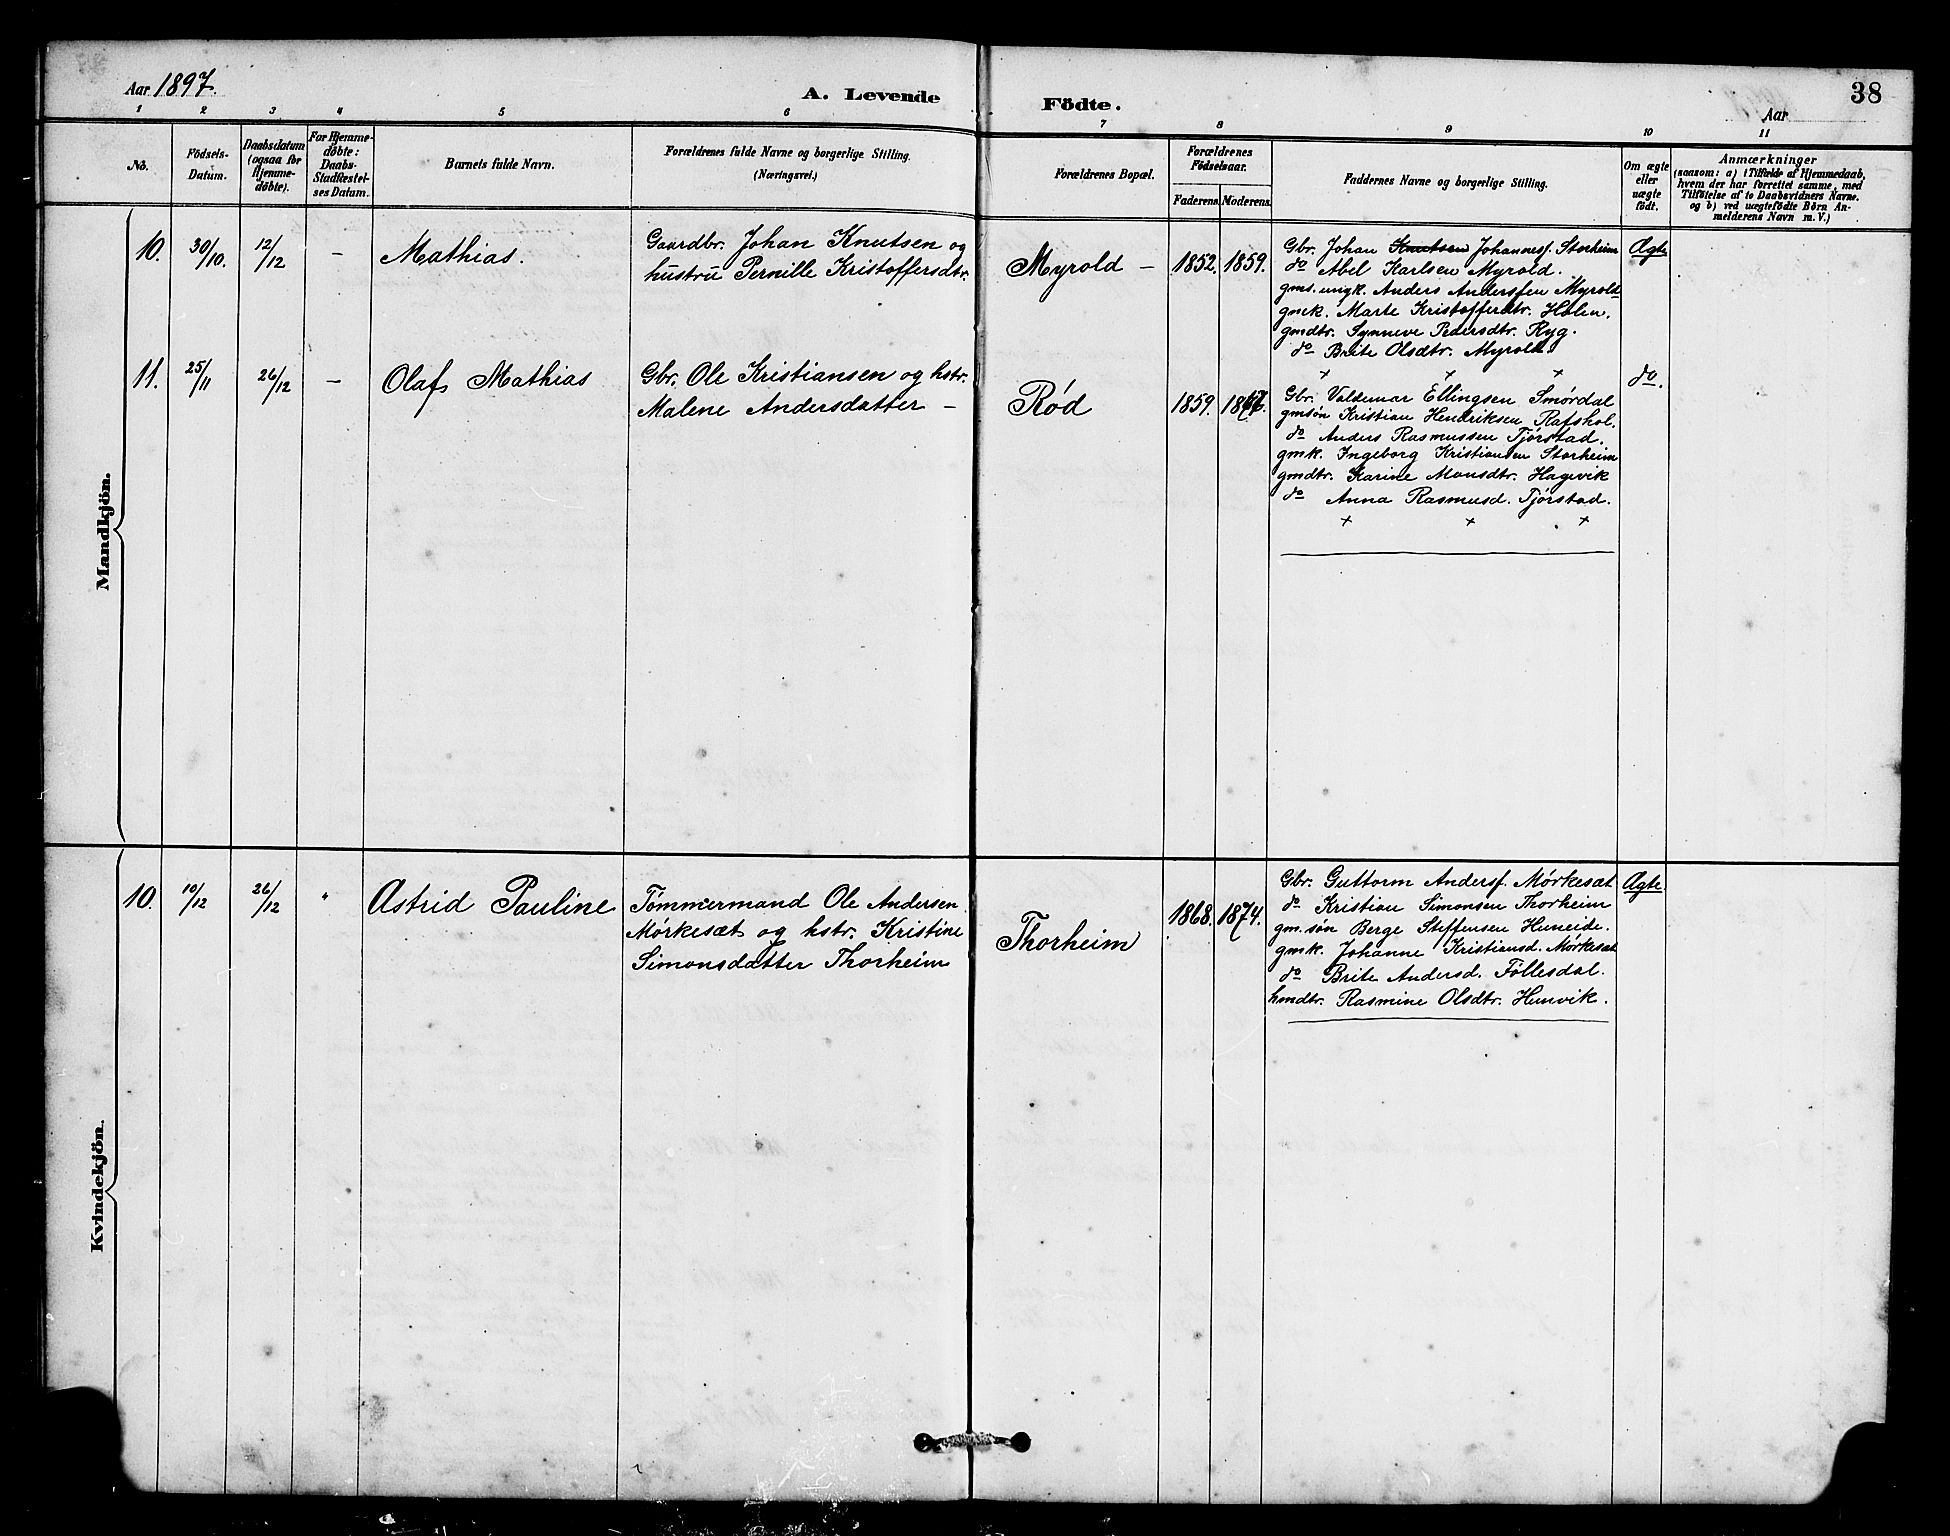 Aar 1897.
A. Levende Födte.
Aar
38
1 2 3 4 5 6 7 8 9 10 11
No.
Födsels-
Datum.
Daabsdatum
(ogsaa for
Hjemme-
döbte).
For Hjemme-
døbte:
Daabs-
Stadfæstel-
ses Datum.
Barnets fulde Navn.
Forældrenes fulde Navne og borgerlige Stilling.
(Næringsvei.)
Forældrenes Bopæl.
Forældrenes
Födselsaar.
Faderens. Moderens.
Faddernes Navne og borgerlige Stilling.
Om ægte
eller
uægte
født.
Anmærkninger
(saasom: a) i Tilfælde af Hjemmedaab,
hvem der har forrettet samme, med
Tilføielse af to Daabsvidners Navne.
og b) ved uægtefödte Börn An-
melderens Navn m. V.)
Mandkjön.
10. 30/10. 12/12 – Mathias.
Gaardbr. Johan Knutsen og
hustru Pernille Kristoffersdtr.
Myrold – 1852. 1859.
Gbr. Johan Knutsen Johannesf. Storheim
do Abel Karlsen Myrold.
gms. ungk. Anders Andersfen Myrold
gmek. Marte Kristofferdtr. Holen.
gmdtr. Synneve Pedersdtr. Ryg.
do Brite Olsdtr. Myrold.
+ + +
Ægte
11. 25/11 26/12 – Olaf Mathias
Gbr. Ole Kristiansen og hstr.
Malene Andersdatter –
Rød 1859. 1867.
Gbr. Valdemar Ellingsen Smørdal
gmsøn Kristian Hendriksen Rafshol.
do Anders Rasmussen Tjørstad.
gmk. Ingeborg Kristiansen Storheim
gmdtr. Karine Monsdtr. Hagevik
do Anna Rasmusd. Tjørstad.
+ + +
do.
Kvindekjön.
10. 10/12 26/12 " Astrid Pauline
Tømmermand Ole Andersen
Mørkesæt og hstr. Kristine
Simonsdatter Thorheim
Thorheim 1868. 1874.
Gbr. Guttorm Andersf. Mørkesæt
do Kristian Simonsen Thorheim
gm.søn Berge Steffensen Huneide.
gmk. Johanne Kristiansd. Mørkesæt
do Brite Andersd. Föllesdal.
hmdtr. Rasmine Olsdtr. Hunvik.
Ægte.